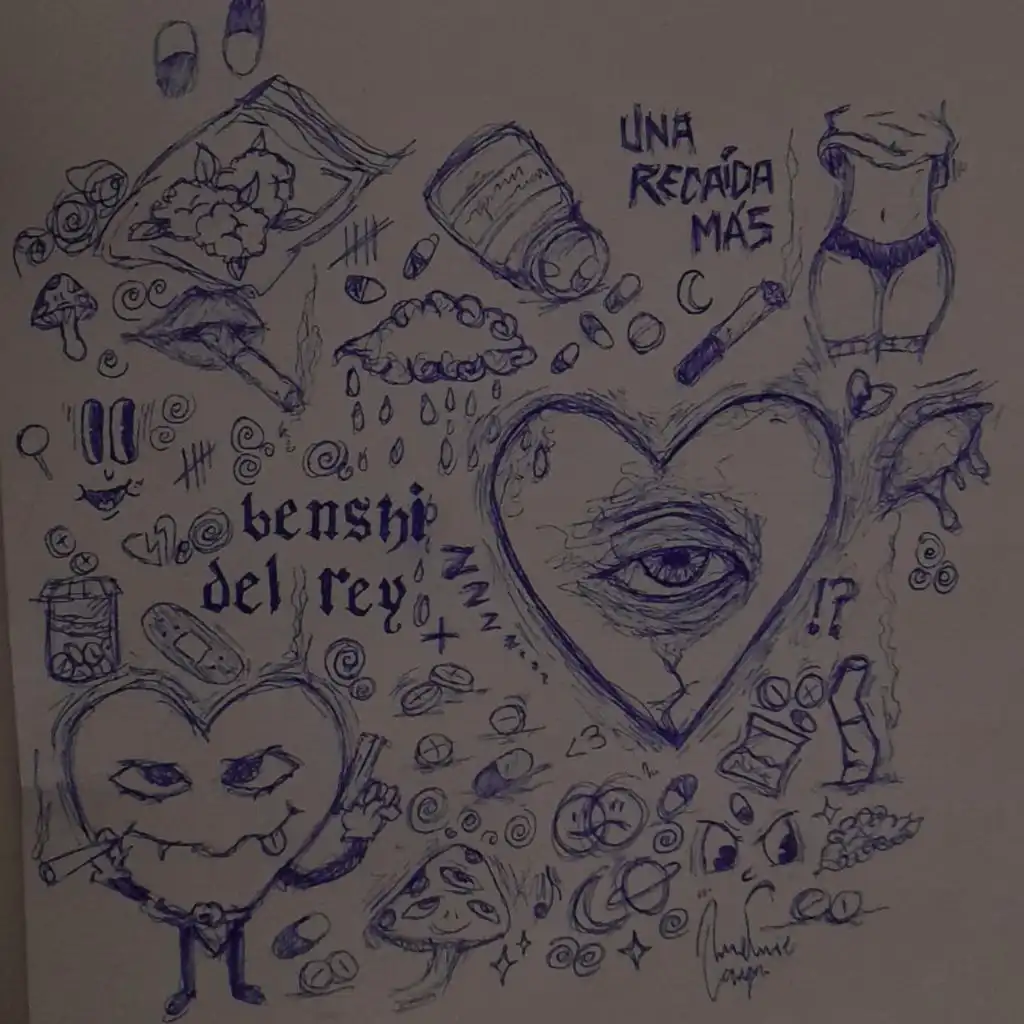 UNA
RECAÍDA
MÁS
benshi
del rey
Z Z Z Z z z z
!?
<3